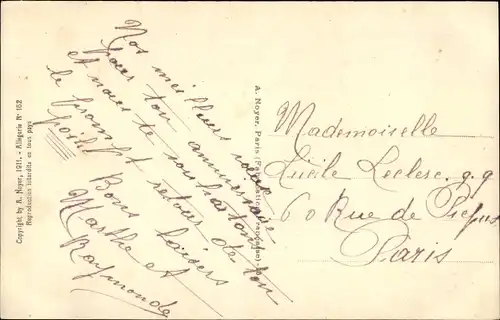 Copyright by A. Noyer, 1911. - Allégorie N° 152
Reproduction interdite en tout pays
Nos meilleurs vœux
pour ton anniversaire
et nous te souhaitons
le prompt retour de ton
poilu
Bons baisers
Marthe et
Raymonde
A. Noyer, Paris (Fabrication Française)
Mademoiselle
Lucile Leclerc
60 Rue de Picpus
Paris